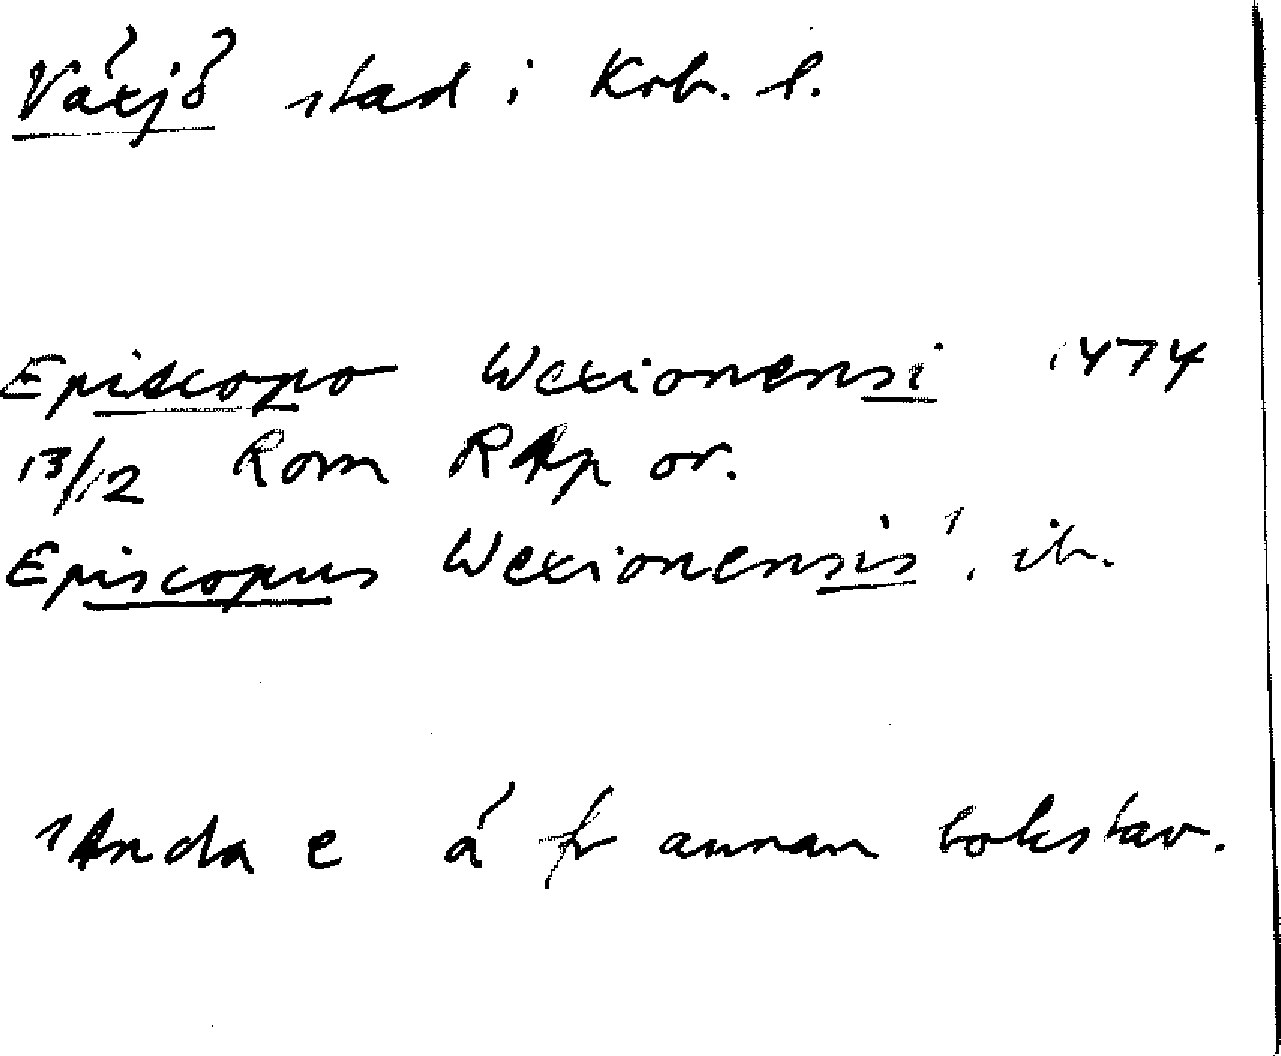 Växjö stad i Krb. l.
Episcopo Wexionensi 1474
13/12 Rom RAp or.
Episcopus Wexionensis¹, ib.
¹Andra e ä fr annan bokstav.